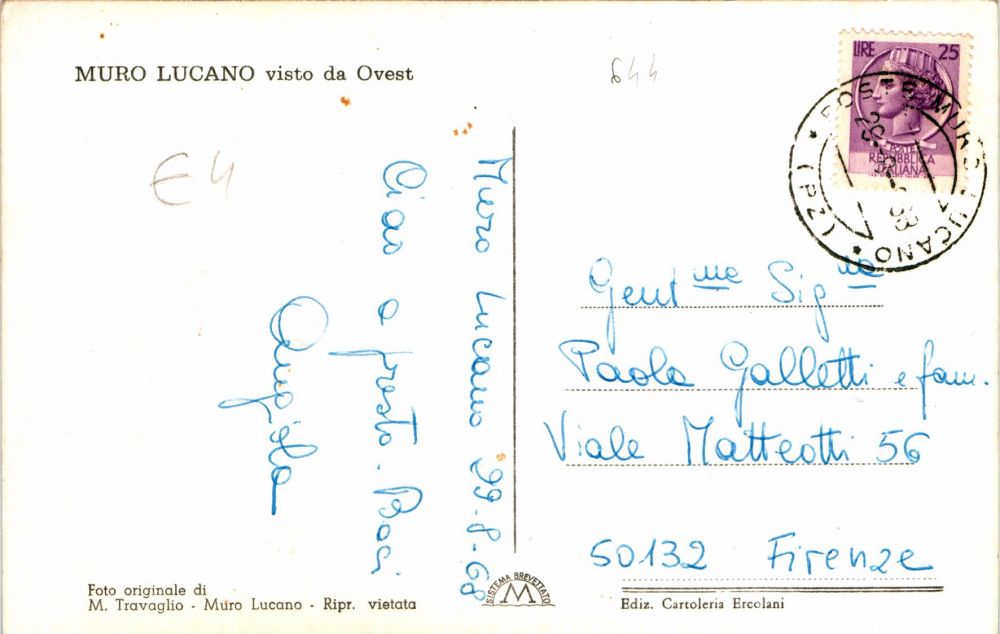 MURO LUCANO visto da Ovest
644
€ 4
Muro Lucano 29-8-68
Ciao a presto. Baci
Angiola
LIRE 25
POSTE
REPUBBLICA
ITALIANA
POSTE MURO LUCANO * (PZ) *
Gent.me Sig.na
Paola Galletti e fam.
Viale Matteotti 56
50132 Firenze
Foto originale di
M. Travaglio - Muro Lucano - Ripr. vietata
SISTEMA BREVETTATO
M
Ediz. Cartoleria Ercolani